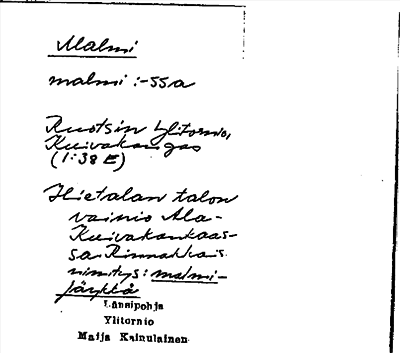 Malmi
malmi :-ssa
Ruotsin Ylitornio,
Kuivakangas
(1:38 E)
Hietalan talon
vainio Ala-
Kuivakankaas-
sa. Rinnakkais
nimitys: malmi-
jäykkä
Länsipohja
Ylitornio
Maija Kainulainen